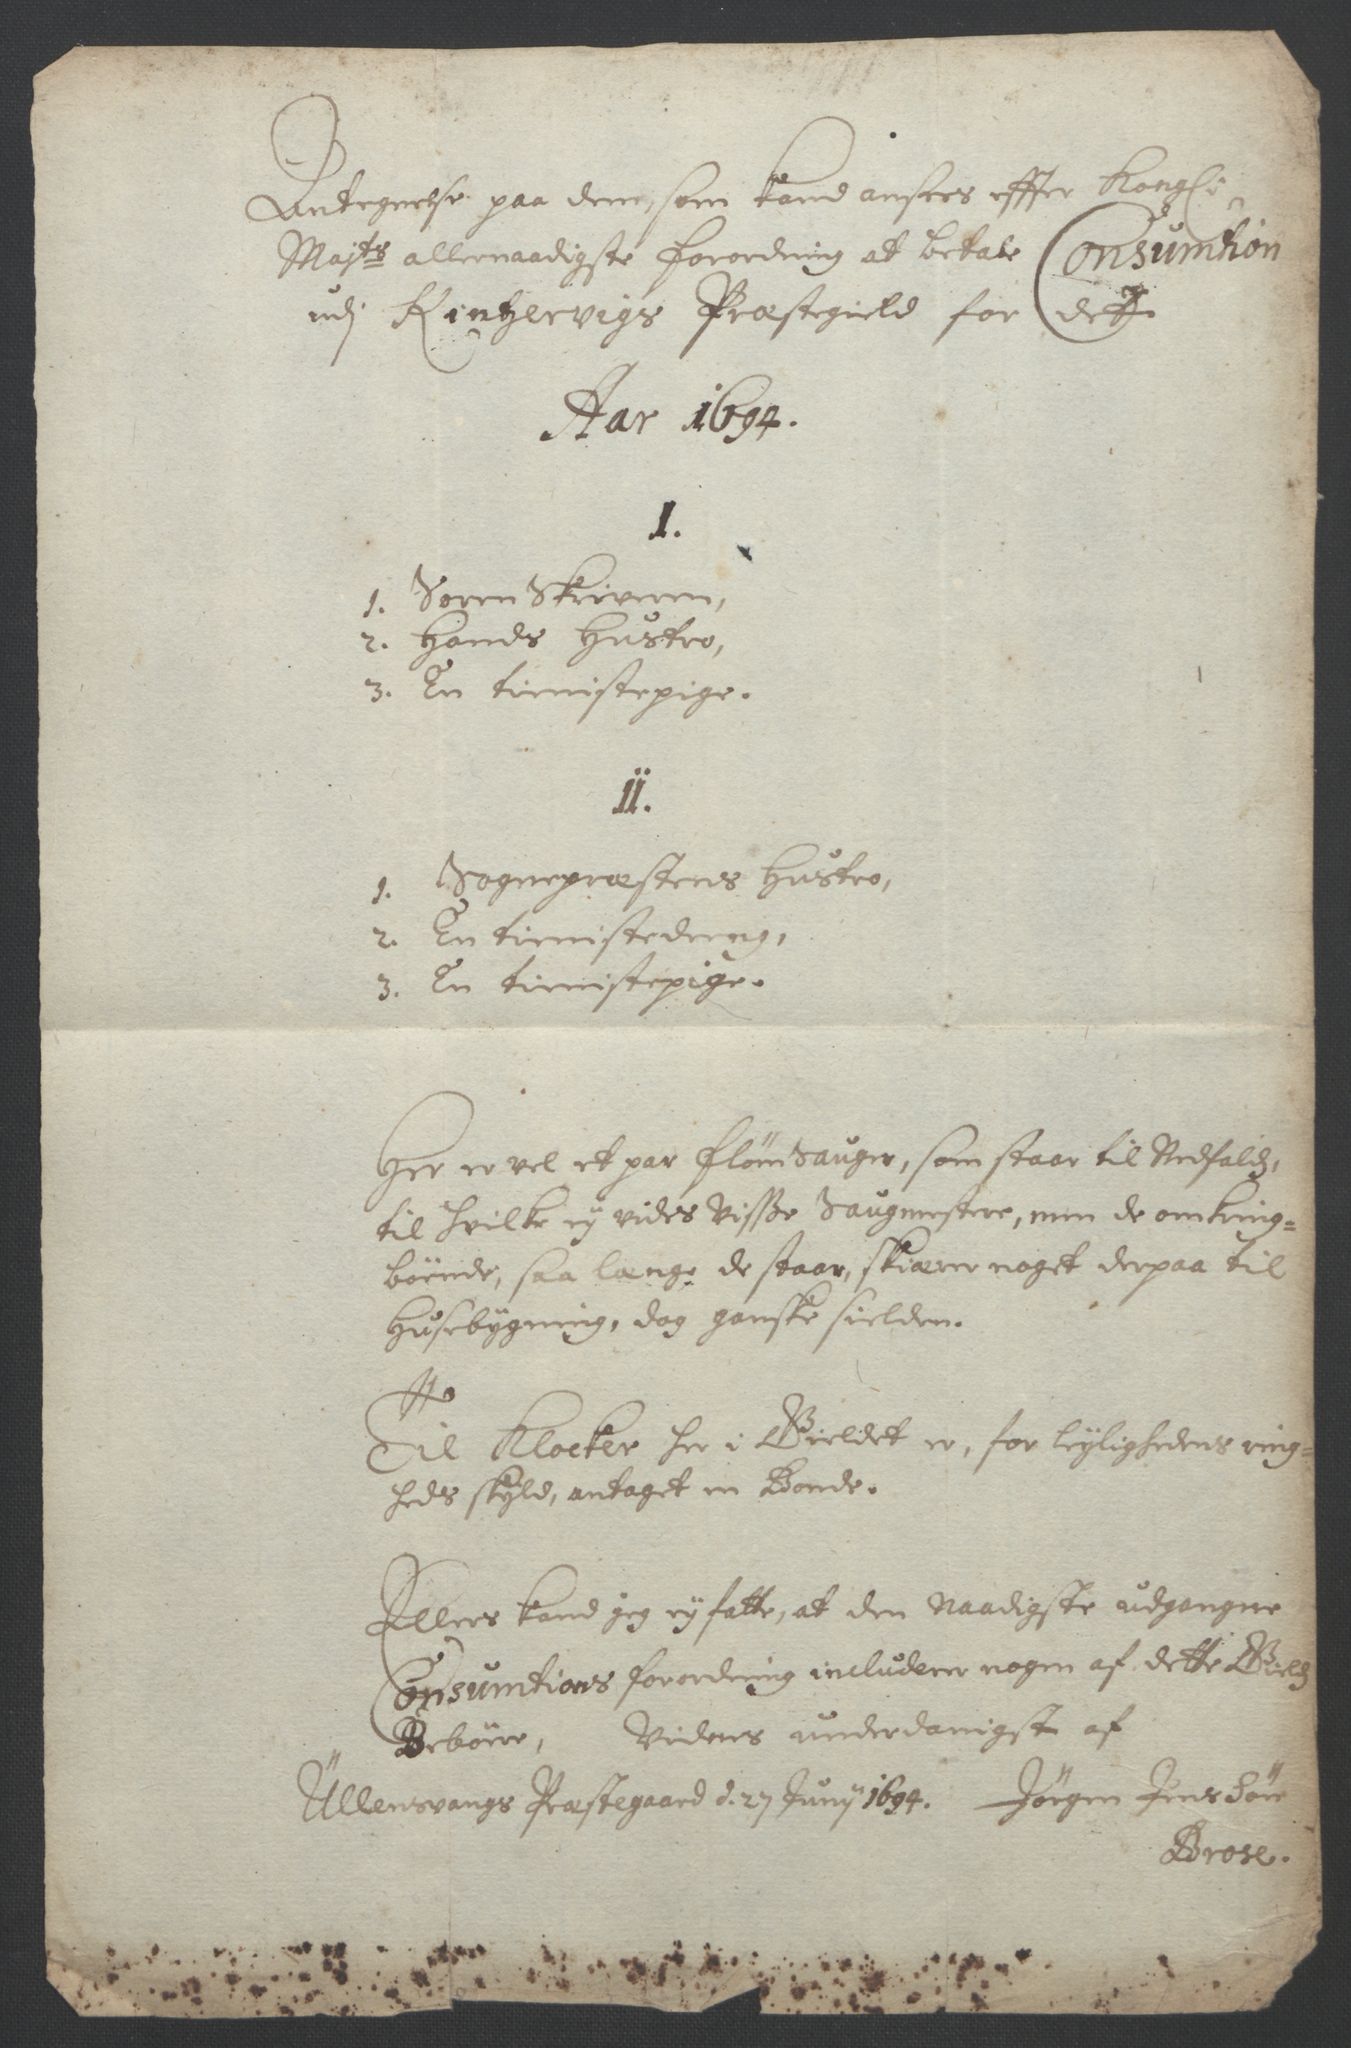 Antegnelse paa dem, som kand ansees effter Kongl:
Majts allernaadigste forordning at betale Consumtion
udj Kintzervigs Præstegield for dett
Aar 1694.
I.
1. Søren Skriveren,
2. Hands Hustro,
3. En tienistepige.
II.
1. Sognepræstens Hustro,
2. En tienistedreng,
3. En tienistepige.
Her er vel et par flom Sauger, som staar til Nedfald,
til hvilke ej vides visse Saugmestere, men de omkring=
böende, saa længe de staar, skiærer noget derpaa til
Husebygning, dog ganske sielden.
Til Klocker her i Gieldet er, for leylighedens ring=
heds skyld, antaget en Bonde.
Ellers kand jeg ej fatte, at den Naadigste udgangne
Consumtions forordning includerer nogen af dette Gields
Beboere, Vidnes underdanigst af
Ullensvangs Præstegaard d. 27 Junij 1694. Jörgen Jensön
Brose.